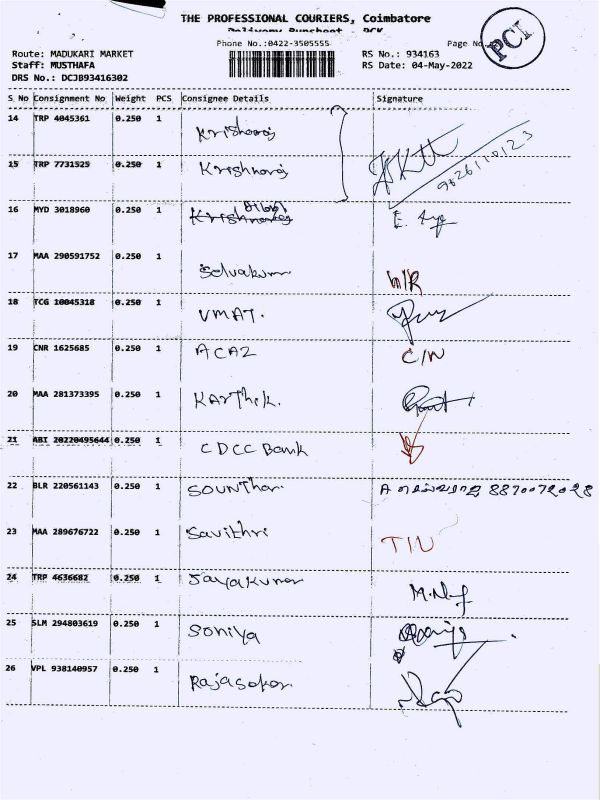 THE PROFESSIONAL COURIERS, Coimbatore
Delivery Runsheet - PCK
Phone No.:0422-3505555
Page No
PCI
Route: MADUKARI MARKET
Staff: MUSTHAFA
RS No.: 934163
RS Date: 04-May-2022
DRS No.: DCJB93416302
S No Consignment No Weight PCS Consignee Details Signature
14 TRP 4045361 0.250 1 Krishnaraj
15 TRP 7731525 0.250 1 Krishnaraj
9626110123
16 MYD 3018960 0.250 1 Krishnaraj
17 MAA 290591752 0.250 1 Selvakum N/R
18 TCG 10045318 0.250 1 VMAT.
19 CNR 1625685 0.250 1 ACAZ C/N
20 MAA 281373395 0.250 1 Karthik.
21 ABI 20220495644 0.250 1 CDCC Bank
22 BLR 220561143 0.250 1 Sounthar. 8870072028
23 MAA 289676722 0.250 1 Savithri
24 TRP 4636682 0.250 1 Jayakumar
25 SLM 294803619 0.250 1 Soniya
26 VPL 938140957 0.250 1 Rajasekar.